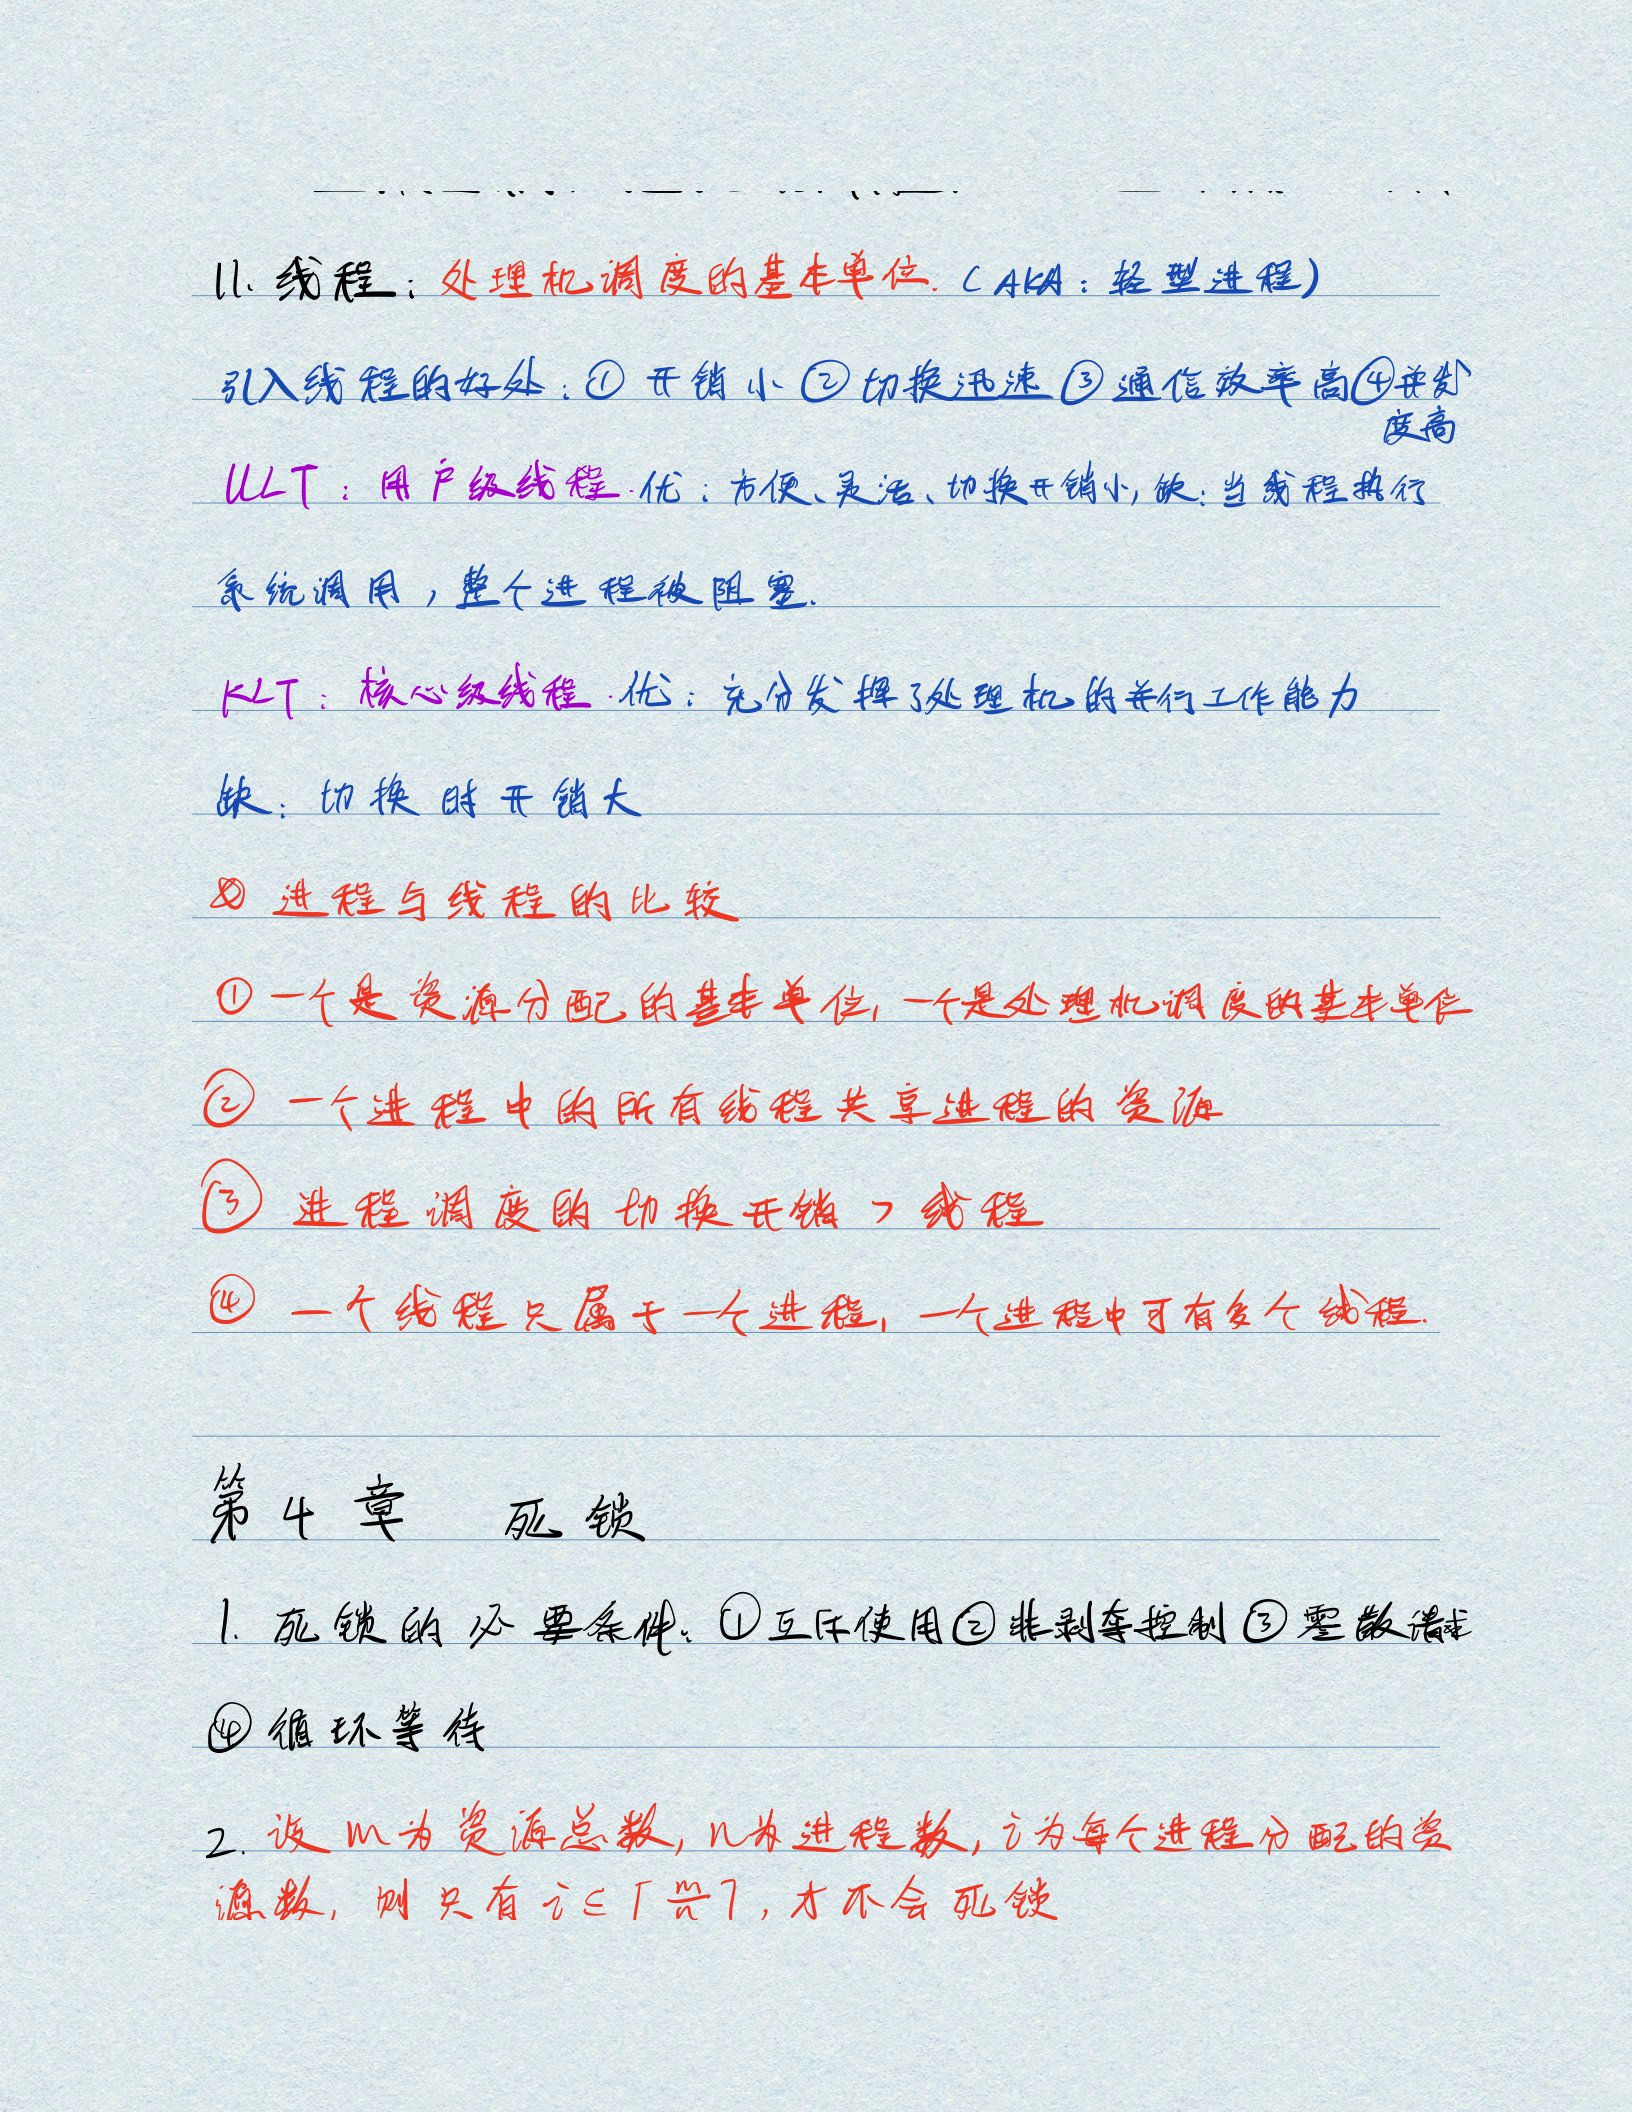 11. 线程：处理机调度的基本单位.（AKA：轻型进程）
引入线程的好处：① 开销小 ② 切换迅速 ③ 通信效率高 ④ 并发
度高
ULT：用户级线程.优：方便、灵活、切换开销小，缺：当线程执行
系统调用，整个进程被阻塞.
KLT：核心级线程.优：充分发挥了处理机的并行工作能力
缺：切换时开销大
进程与线程的比较
① 一个是资源分配的基本单位，一个是处理机调度的基本单位
② 一个进程中的所有线程共享进程的资源
③ 进程调度的切换开销 > 线程
④ 一个线程只属于一个进程，一个进程中可有多个线程.
第4章 死锁
1. 死锁的必要条件：① 互斥使用 ② 非剥夺控制 ③ 零散请求
④ 循环等待
2. 设m为资源总数，n为进程数，i为每个进程分配的资
源数，则只有 i ≤ ⌈m/n⌉，才不会死锁